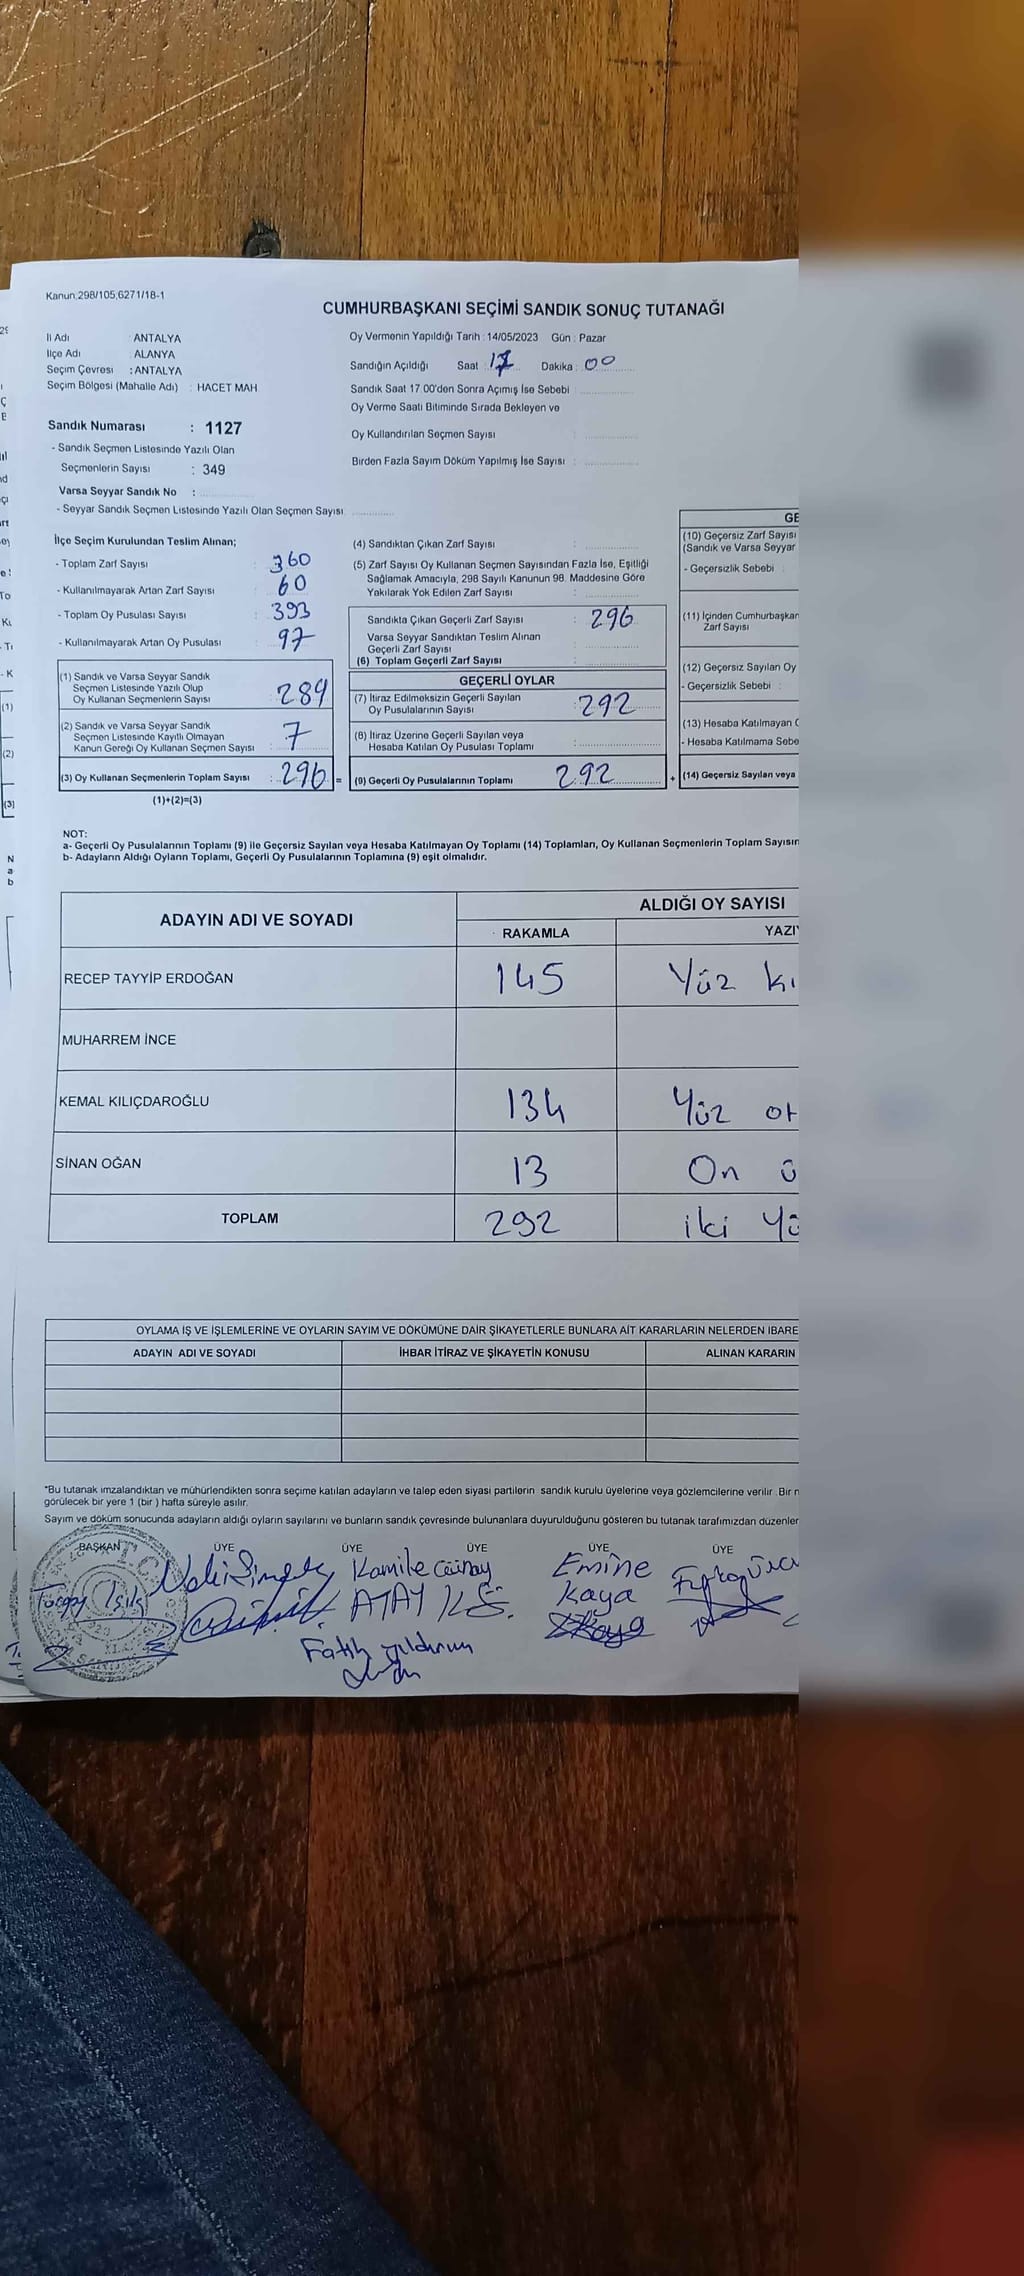 Kanun;298/105;6271/18-1
CUMHURBAŞKANI SEÇİMİ SANDIK SONUÇ TUTANAĞI
İl Adı : ANTALYA
İlçe Adı : ALANYA
Seçim Çevresi : ANTALYA
Seçim Bölgesi (Mahalle Adı) : HACET MAH
Oy Vermenin Yapıldığı Tarih : 14/05/2023 Gün : Pazar
Sandığın Açıldığı Saat : 17 Dakika : 00
Sandık Saat 17.00'den Sonra Açımış İse Sebebi :
Oy Verme Saati Bitiminde Sırada Bekleyen ve
Oy Kullandırılan Seçmen Sayısı :
Birden Fazla Sayım Döküm Yapılmış İse Sayısı :
Sandık Numarası : 1127
- Sandık Seçmen Listesinde Yazılı Olan
Seçmenlerin Sayısı : 349
Varsa Seyyar Sandık No :
- Seyyar Sandık Seçmen Listesinde Yazılı Olan Seçmen Sayısı
İlçe Seçim Kurulundan Teslim Alınan;
- Toplam Zarf Sayısı : 360
- Kullanılmayarak Artan Zarf Sayısı : 60
- Toplam Oy Pusulası Sayısı : 393
- Kullanılmayarak Artan Oy Pusulası : 97
(1) Sandık ve Varsa Seyyar Sandık
Seçmen Listesinde Yazılı Olup
Oy Kullanan Seçmenlerin Sayısı : 289
(2) Sandık ve Varsa Seyyar Sandık
Seçmen Listesinde Kayıtlı Olmayan
Kanun Gereği Oy Kullanan Seçmen Sayısı : 7
(3) Oy Kullanan Seçmenlerin Toplam Sayısı : 296 =
(1)+(2)=(3)
(4) Sandıktan Çıkan Zarf Sayısı :
(5) Zarf Sayısı Oy Kullanan Seçmen Sayısından Fazla İse, Eşitliği
Sağlamak Amacıyla, 298 Sayılı Kanunun 98. Maddesine Göre
Yakılarak Yok Edilen Zarf Sayısı :
Sandıkta Çıkan Geçerli Zarf Sayısı : 296
Varsa Seyyar Sandıktan Teslim Alınan
Geçerli Zarf Sayısı :
(6) Toplam Geçerli Zarf Sayısı :
GEÇERLİ OYLAR
(7) İtiraz Edilmeksizin Geçerli Sayılan
Oy Pusulalarının Sayısı : 292
(8) İtiraz Üzerine Geçerli Sayılan veya
Hesaba Katılan Oy Pusulası Toplamı :
(9) Geçerli Oy Pusulalarının Toplamı 292 +
GE
(10) Geçersiz Zarf Sayısı
(Sandık ve Varsa Seyyar
- Geçersizlik Sebebi :
(11) İçinden Cumhurbaşkan
Zarf Sayısı
(12) Geçersiz Sayılan Oy
- Geçersizlik Sebebi :
(13) Hesaba Katılmayan
- Hesaba Katılmama Sebe
(14) Geçersiz Sayılan veya
NOT:
a- Geçerli Oy Pusulalarının Toplamı (9) ile Geçersiz Sayılan veya Hesaba Katılmayan Oy Toplamı (14) Toplamları, Oy Kullanan Seçmenlerin Toplam Sayısın
b- Adayların Aldığı Oyların Toplamı, Geçerli Oy Pusulalarının Toplamına (9) eşit olmalıdır.
ADAYIN ADI VE SOYADI ALDIĞI OY SAYISI
RAKAMLA YAZI
RECEP TAYYİP ERDOĞAN 145 Yüz kı
MUHARREM İNCE
KEMAL KILIÇDAROĞLU 134 Yüz ot
SİNAN OĞAN 13 On ü
TOPLAM 292 iki yü
OYLAMA İŞ VE İŞLEMLERİNE VE OYLARIN SAYIM VE DÖKÜMÜNE DAİR ŞİKAYETLERLE BUNLARA AİT KARARLARIN NELERDEN İBARE
ADAYIN ADI VE SOYADI İHBAR İTİRAZ VE ŞİKAYETİN KONUSU ALINAN KARARIN
*Bu tutanak imzalandıktan ve mühürlendikten sonra seçime katılan adayların ve talep eden siyasi partilerin sandık kurulu üyelerine veya gözlemcilerine verilir. Bir n
görülecek bir yere 1 (bir ) hafta süreyle asılır.
Sayım ve döküm sonucunda adayların aldığı oyların sayılarını ve bunların sandık çevresinde bulunanlara duyurulduğunu gösteren bu tutanak tarafımızdan düzenler
BAŞKAN ÜYE ÜYE ÜYE ÜYE ÜYE
Kamile Günay Emine
ATAY Kaya
Fatih Yıldırım